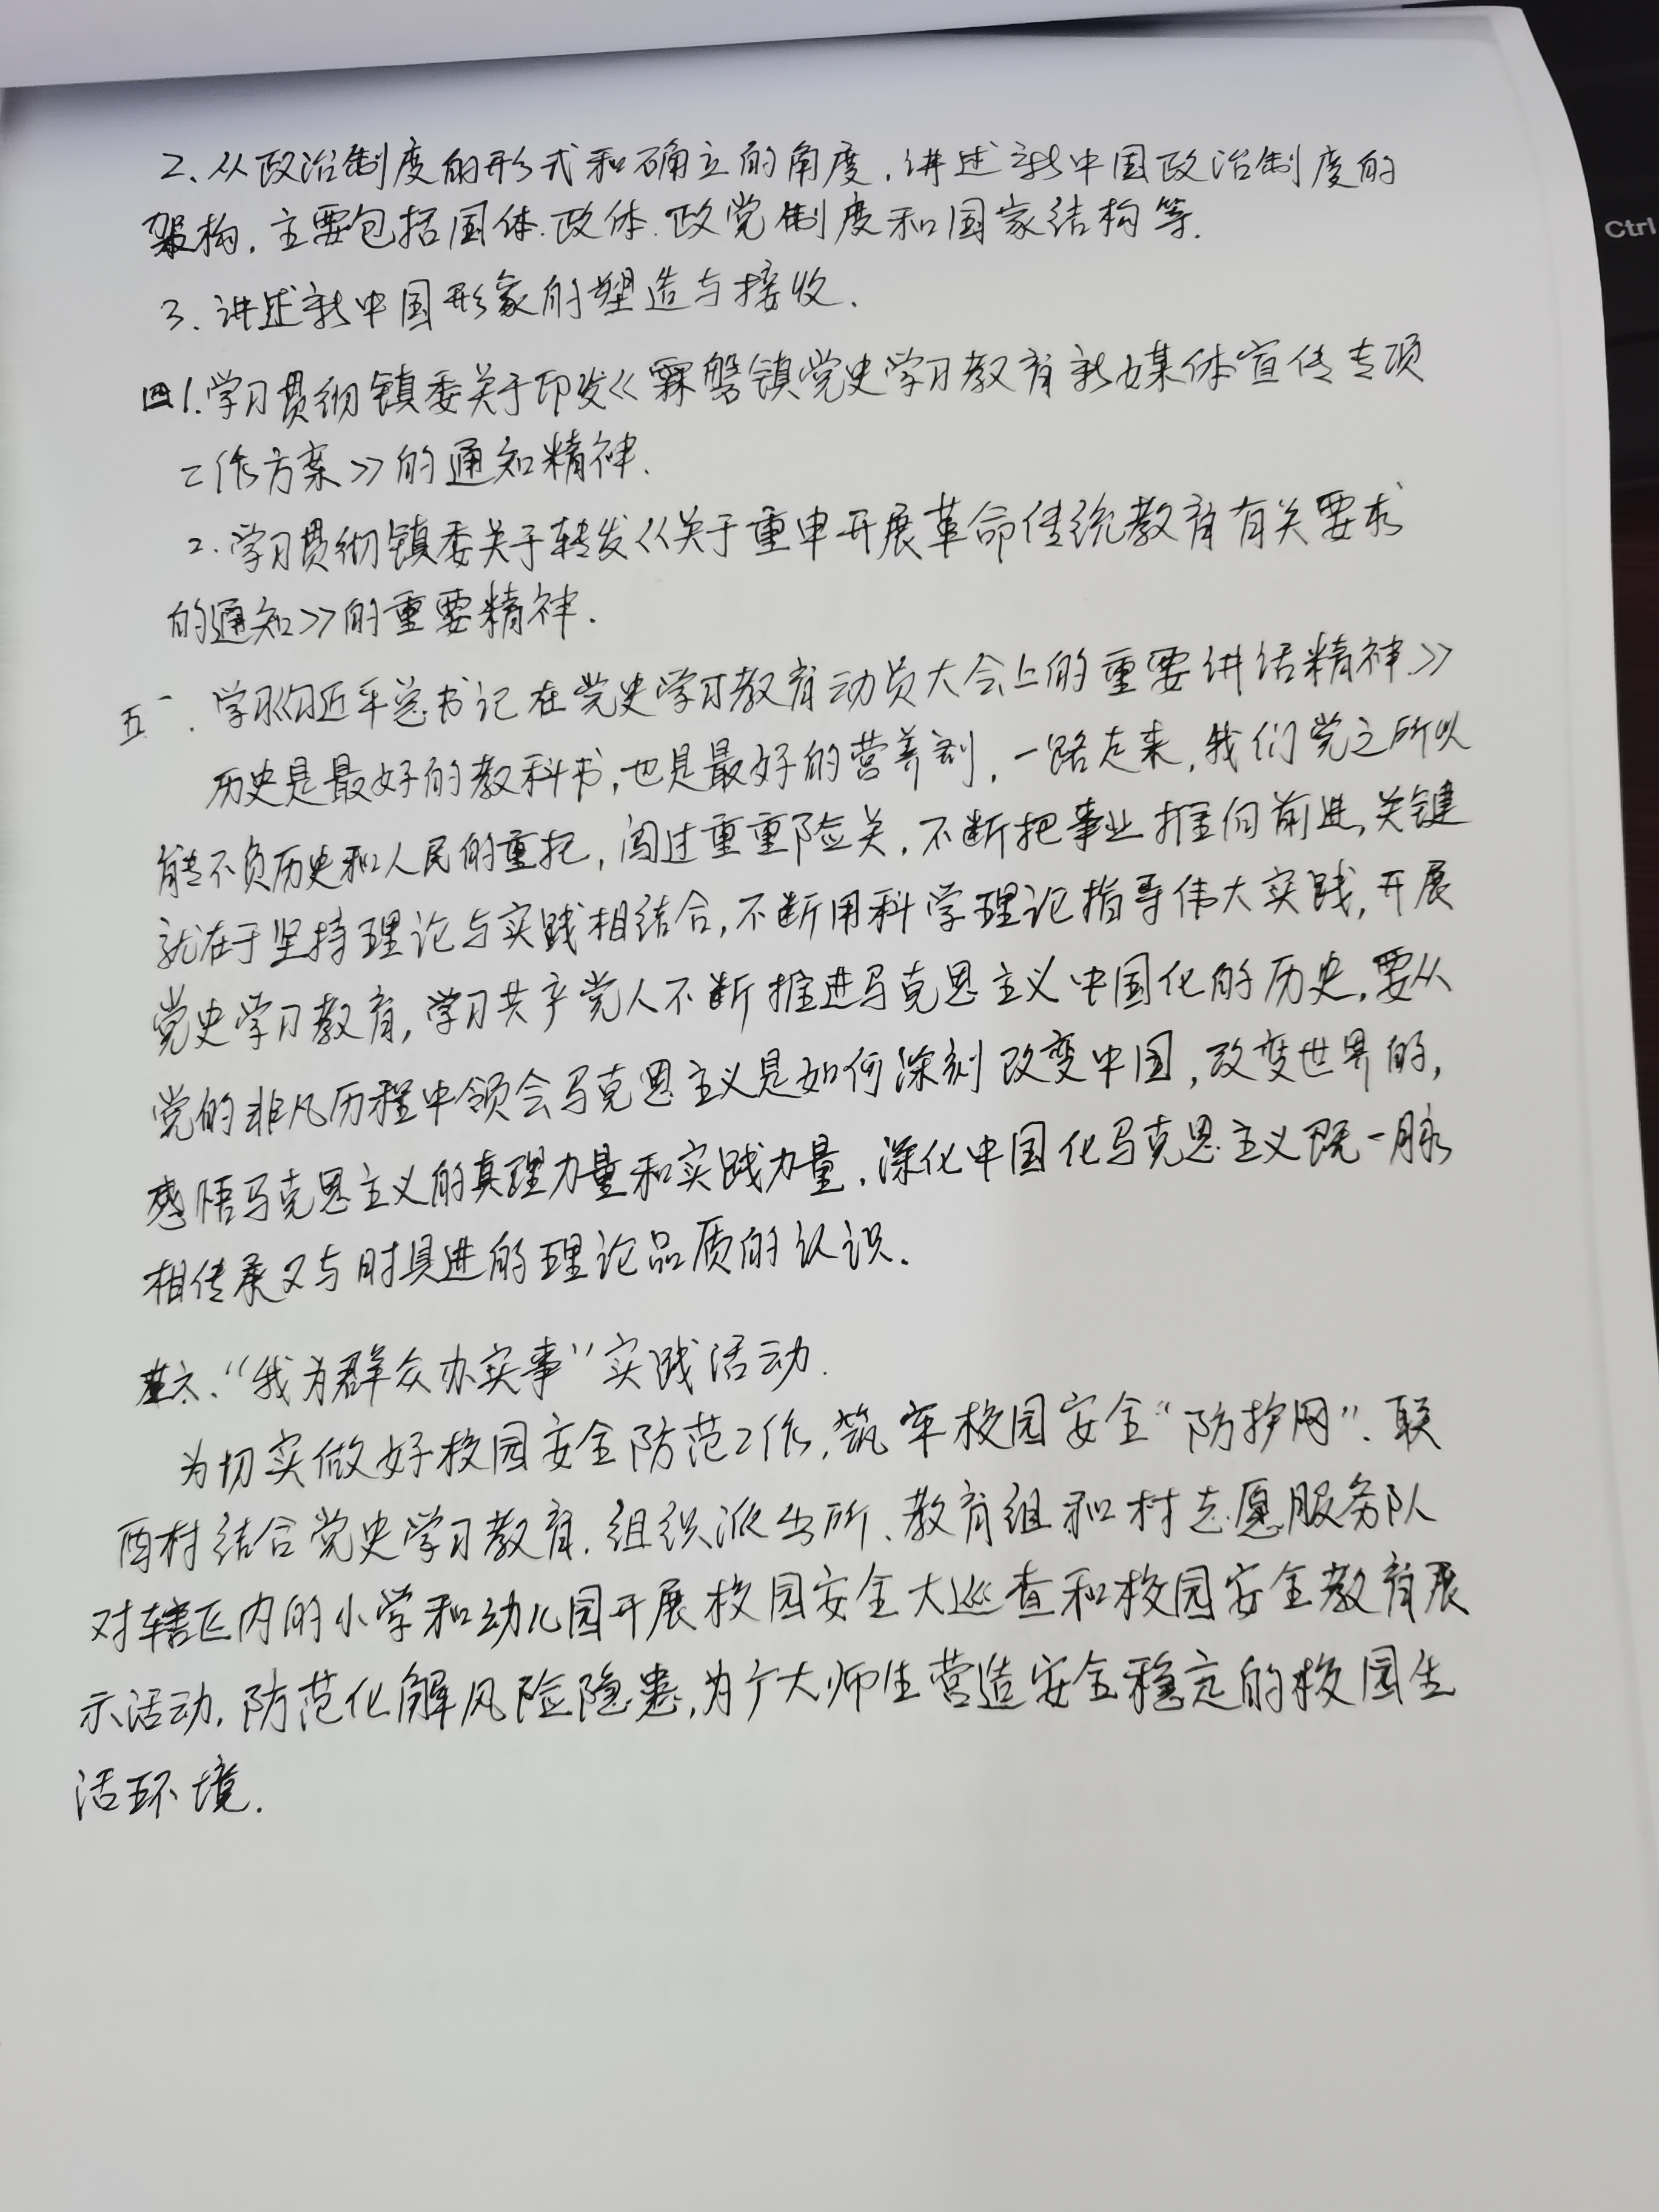 2、从政治制度的形式和确立的角度,讲述新中国政治制度的
架构,主要包括国体、政体、政党制度和国家结构等.
3、讲述新中国形象的塑造与接收、
四1.学习贯彻镇委关于印发《霖磐镇党史学习教育新媒体宣传专项
工作方案》的通知精神.
2.学习贯彻镇委关于转发《关于重申开展革命传统教育有关要求
的通知》的重要精神.
五、学习《习近平总书记在党史学习教育动员大会上的重要讲话精神》
历史是最好的教科书,也是最好的营养剂,一路走来,我们党之所以
能不负历史和人民的重托,闯过重重险关,不断把事业推向前进,关键
就在于坚持理论与实践相结合,不断用科学理论指导伟大实践,开展
党史学习教育,学习共产党人不断推进马克思主义中国化的历史,要从
党的非凡历程中领会马克思主义是如何深刻改变中国,改变世界的,
感悟马克思主义的真理力量和实践力量,深化中国化马克思主义既一脉
相传承又与时具进的理论品质的认识.
六、“我为群众办实事”实践活动.
为切实做好校园安全防范工作,筑牢校园安全“防护网”、联
西村结合党史学习教育.组织派出所、教育组和村志愿服务队
对辖区内的小学和幼儿园开展校园安全大巡查和校园安全教育展
示活动,防范化解风险隐患,为广大师生营造安全稳定的校园生
活环境.
Ctrl